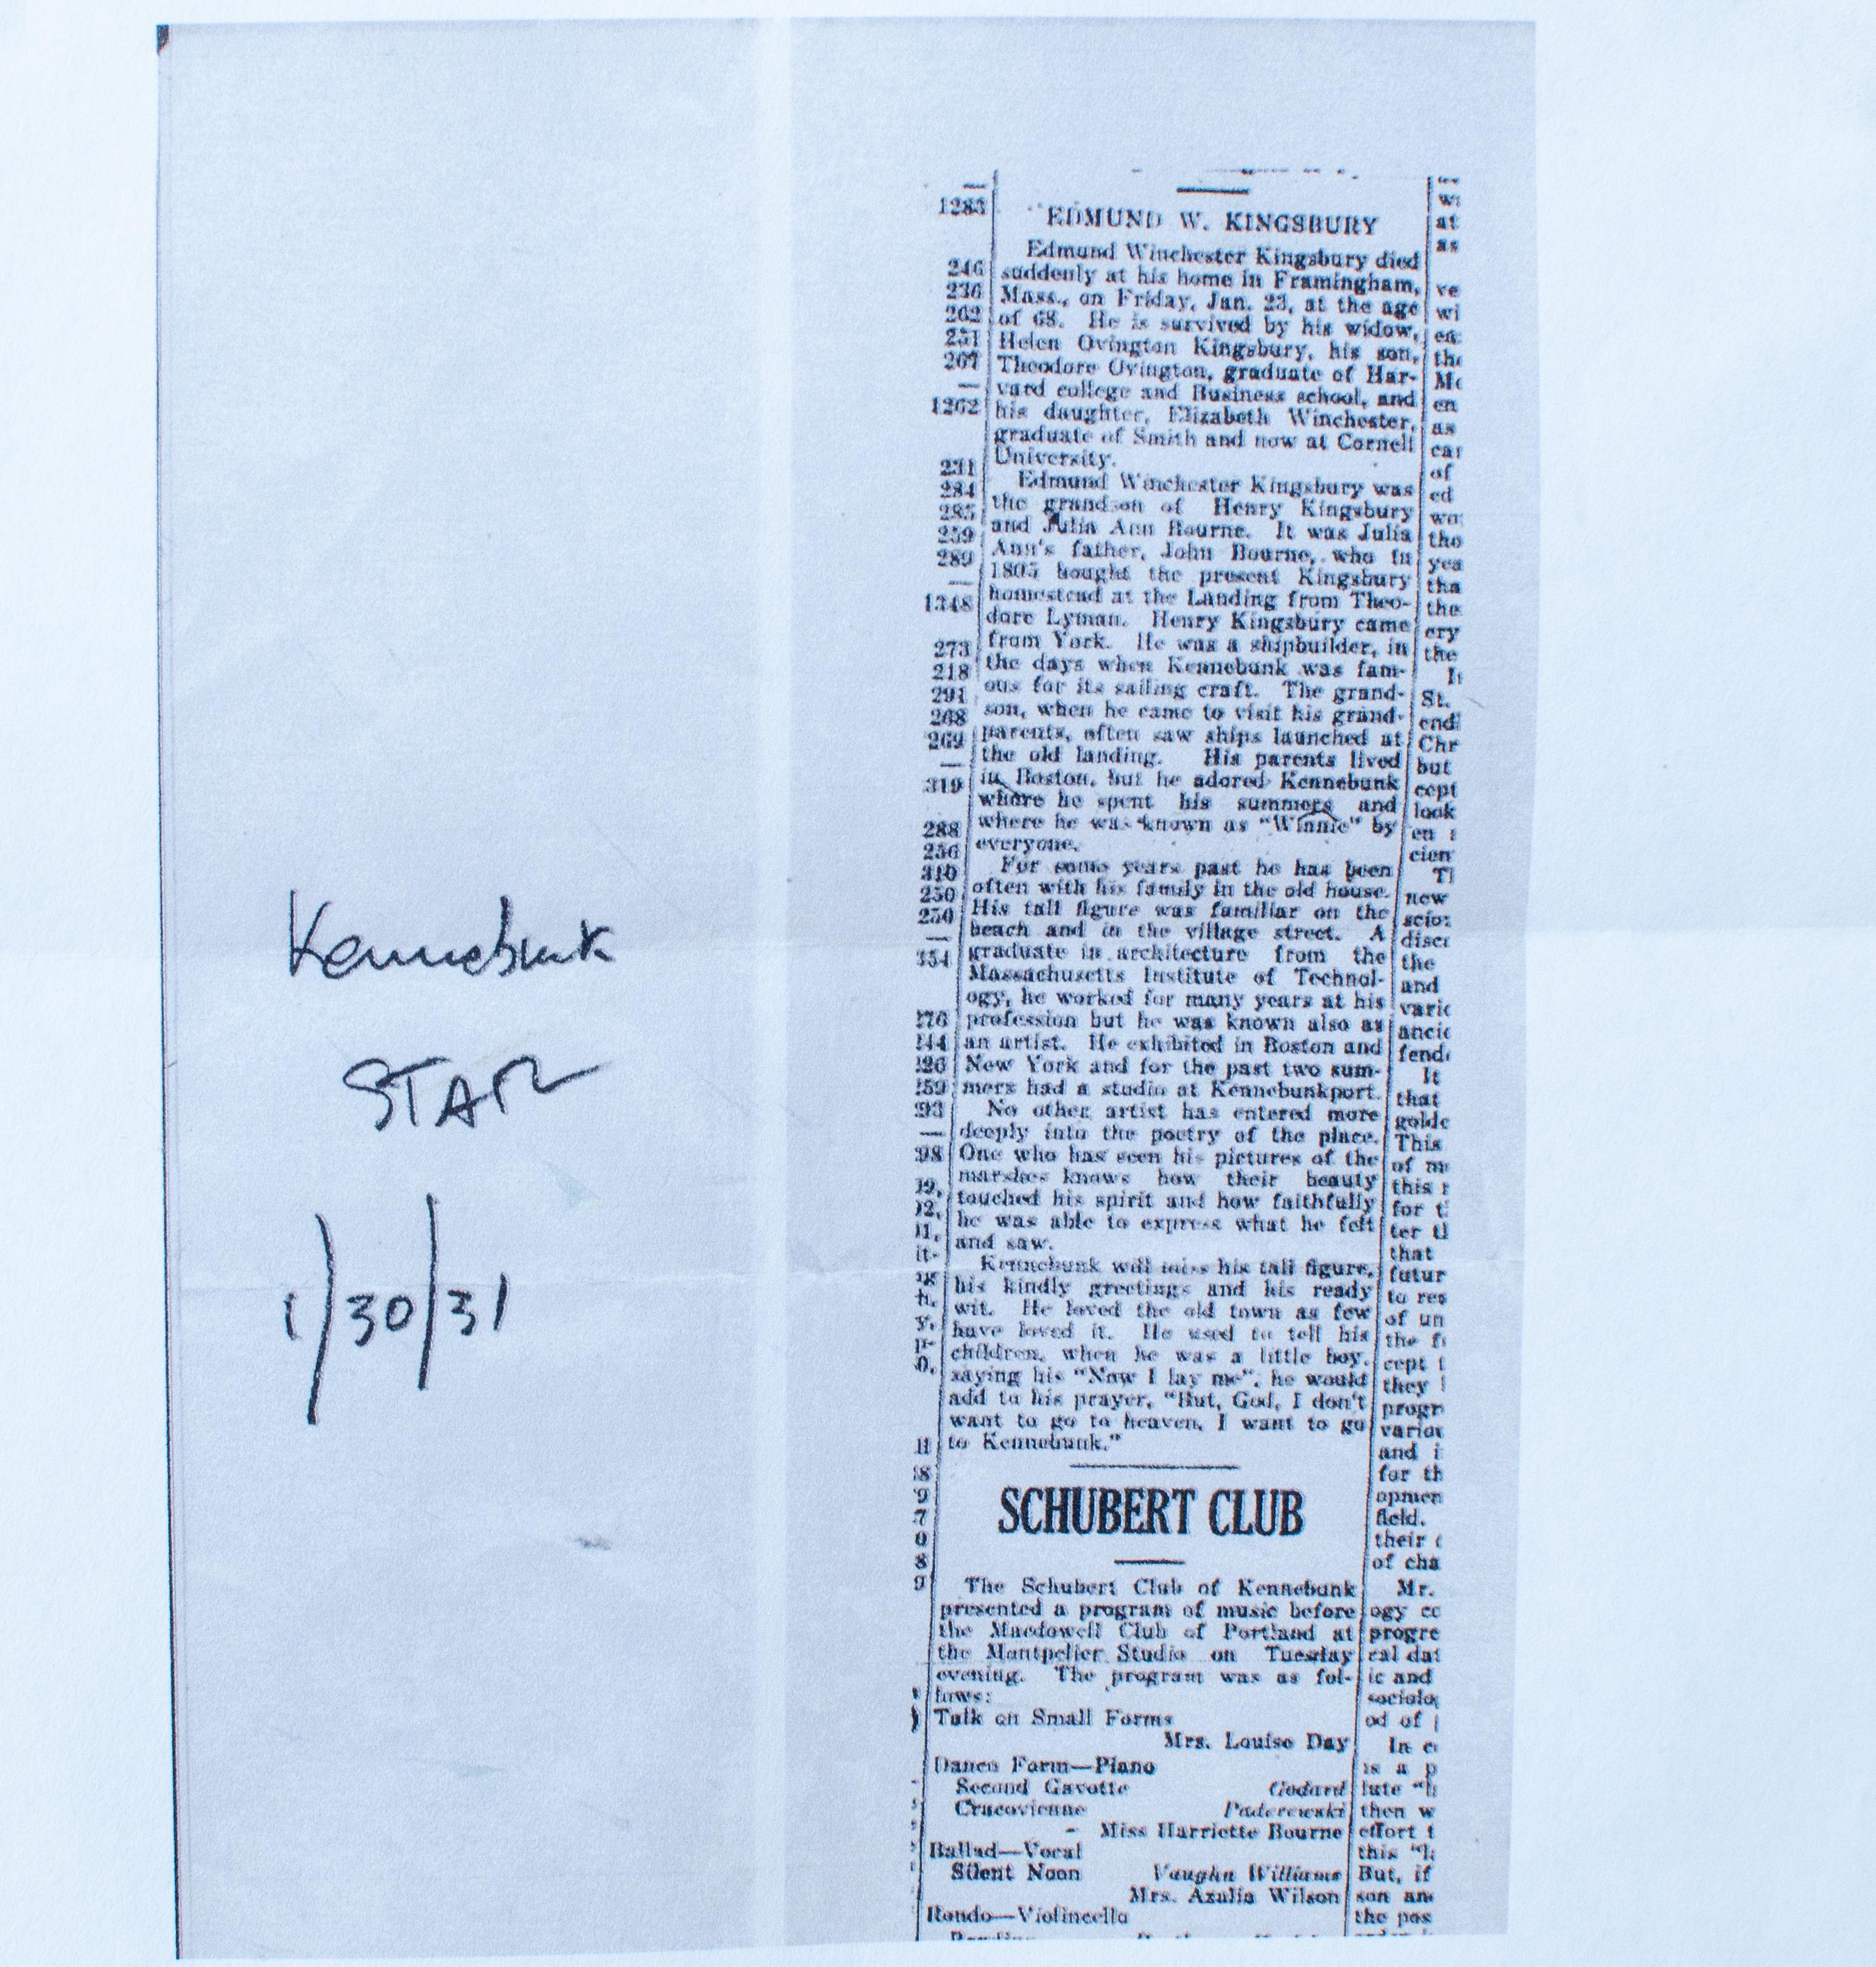 Kennebunk
STAR
1/30/31
1283
246
236
262
251
267
1262
231
284
285
259
289
1348
273
218
291
268
269
319
288
256
310
250
250
354
EDMUND W. KINGSBURY
Edmund Winchester Kingsbury died
suddenly at his home in Framingham,
Mass., on Friday, Jan. 23, at the age
of 68. He is survived by his widow,
Helen Ovington Kingsbury, his son,
Theodore Ovington, graduate of Har-
vard college and Business school, and
his daughter, Elizabeth Winchester,
graduate of Smith and now at Cornell
University.
Edmund Winchester Kingsbury was
the grandson of Henry Kingsbury
and Julia Ann Bourne. It was Julia
Ann's father, John Bourne, who in
1805 bought the present Kingsbury
homestead at the Landing from Theo-
dore Lyman. Henry Kingsbury came
from York. He was a shipbuilder, in
the days when Kennebunk was fam-
ous for its sailing craft. The grand-
son, when he came to visit his grand-
parents, often saw ships launched at
the old landing. His parents lived
in Boston, but he adored Kennebunk
where he spent his summers and
where he was known as "Winnie" by
everyone.
For some years past he has been
often with his family in the old house.
His tall figure was familiar on the
beach and in the village street. A
graduate in architecture from the
Massachusetts Institute of Technol-
ogy, he worked for many years at his
profession but he was known also as
an artist. He exhibited in Boston and
New York and for the past two sum-
mers had a studio at Kennebunkport.
No other artist has entered more
deeply into the poetry of the place.
One who has seen his pictures of the
marshes knows how their beauty
touched his spirit and how faithfully
he was able to express what he felt
and saw.
Kennebunk will miss his tall figure,
his kindly greetings and his ready
wit. He loved the old town as few
have loved it. He used to tell his
children, when he was a little boy,
saying his "Now I lay me", he would
add to his prayer, "But, God, I don't
want to go to heaven, I want to go
to Kennebunk."
SCHUBERT CLUB
The Schubert Club of Kennebunk
presented a program of music before
the Macdowell Club of Portland at
the Montpelier Studio on Tuesday
evening. The program was as fol-
lows:
Talk on Small Forms
Mrs. Louise Day
Dance Form—Piano
Second Gavotte Godard
Cracovienne Paderewski
Miss Harriette Bourne
Ballad—Vocal
Silent Noon Vaughn Williams
Mrs. Azalia Wilson
Rondo—Violincello